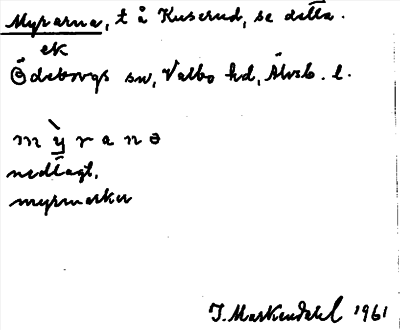 Myrarna, t å Kuserud, se detta.
ek
Ödeborgs sn, Valbo hd, Älvsb. l.
m ỳ r a n ə
nedlagt,
myrmarker
1961